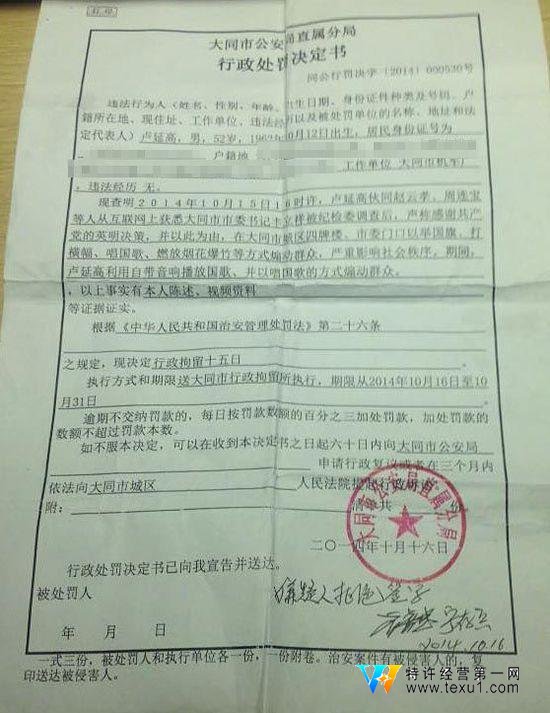 大同市公安局直属分局
行政处罚决定书
同公行罚决字〔2014〕000530号
违法行为人（姓名、性别、年龄、出生日期、身份证件种类及号码、户
籍所在地、现住址、工作单位、违法经历以及被处罚单位的名称、地址和法
定代表人）卢延高，男，52岁，1962年10月12日出生，居民身份证号为
户籍地
工作单位 大同市机车厂
，违法经历 无。
现查明2014年10月15日16时许，卢延高伙同赵云孝、周连宝
等人从互联网上获悉大同市市委书记丰立祥被纪检委调查后，声称感谢共产
党的英明决策，并以此为由，在大同市城区四牌楼、市委门口以举国旗，打
横幅、唱国歌、燃放烟花爆竹等方式煽动群众，严重影响社会秩序，期间，
卢延高利用自带音响播放国歌、并以唱国歌的方式煽动群众。
，以上事实有本人陈述、视频资料
等证据证实。
根据《中华人民共和国治安管理处罚法》第二十六条
之规定，现决定行政拘留十五日
执行方式和期限送大同市行政拘留所执行，期限从2014年10月16日至10
月31日
逾期不交纳罚款的，每日按罚款数额的百分之三加处罚款，加处罚款的
数额不超过罚款本数。
如不服本决定，可以在收到本决定书之日起六十日内向大同市公安局
申请行政复议或者在三个月内
依法向大同市城区 人民法院提起行政诉讼。
附： 清单共 份
大同市公安局直属分局
二〇一四年十月十六日
行政处罚决定书已向我宣告并送达。
被处罚人
嫌疑人拒绝签字
2014.10.16
年 月 日
一式三份，被处罚人和执行单位各一份，一份附卷。治安案件有被侵害人的，复
印送达被侵害人。
特许经营第一网
www.texu1.com